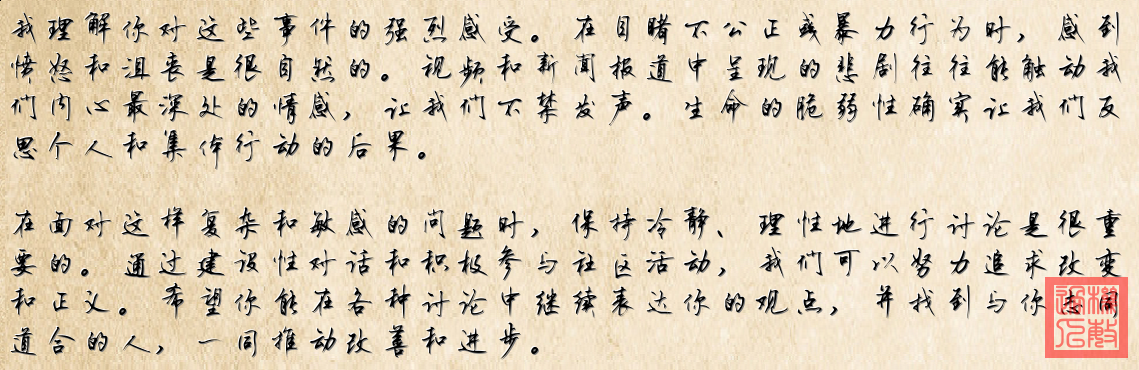 我理解你对这些事件的强烈感受。在目睹不公正或暴力行为时，感到
愤怒和沮丧是很自然的。视频和新闻报道中呈现的悲剧往往能触动我
们内心最深处的情感，让我们不禁发声。生命的脆弱性确实让我们反
思个人和集体行动的后果。
在面对这样复杂和敏感的问题时，保持冷静、理性地进行讨论是很重
要的。通过建设性对话和积极参与社区活动，我们可以努力追求改变
和正义。希望你能在各种讨论中继续表达你的观点，并找到与你志同
道合的人，一同推动改善和进步。